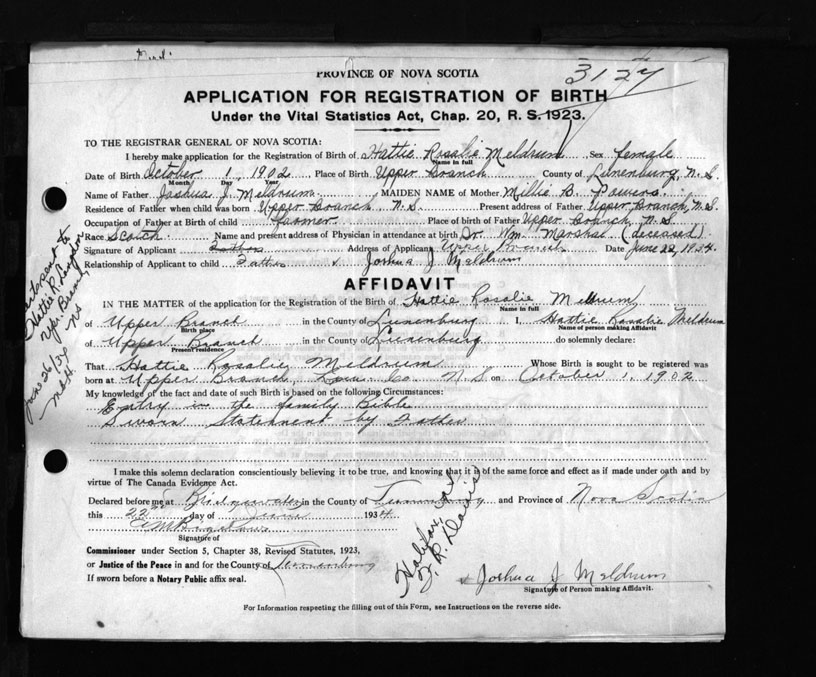 PROVINCE OF NOVA SCOTIA
3127
APPLICATION FOR REGISTRATION OF BIRTH
Under the Vital Statistics Act, Chap. 20, R. S. 1923.
TO THE REGISTRAR GENERAL OF NOVA SCOTIA:
I hereby make application for the Registration of Birth of Hattie Rosalie Meldrum Sex female
Name in full
Date of Birth October 1, 1902 Place of Birth Upper Branch County of Lunenburg, N.S.
Month Day Year
Name of Father Joshua J. Meldrum MAIDEN NAME of Mother Millie B. Powers
Residence of Father when child was born Upper Branch N.S. Present address of Father Upper Branch, N.S.
Occupation of Father at Birth of child farmer Place of birth of Father Upper Branch, N.S.
Race Scotch Name and present address of Physician in attendance at birth Dr. Wm. Marshal (deceased)
Signature of Applicant Father Address of Applicant Upper Branch Date June 22, 1934
Relationship of Applicant to child Father Joshua J Meldrum
AFFIDAVIT
IN THE MATTER of the application for the Registration of the Birth of Hattie Rosalie Meldrum
Name in full
of Upper Branch in the County of Lunenburg I, Hattie Rosalie Meldrum
Birth place Name of person making Affidavit
of Upper Branch in the County of Lunenburg do solemnly declare:
Present residence
That Hattie Rosalie Meldrum Whose Birth is sought to be registered was
born at Upper Branch, Lun. Co. N.S on October 1, 1902
My knowledge of the fact and date of such Birth is based on the following Circumstances:
Entry in the family Bible
Sworn Statement by Father
I make this solemn declaration conscientiously believing it to be true, and knowing that it is of the same force and effect as if made under oath and by
virtue of The Canada Evidence Act.
Declared before me at Bridgewater in the County of Lunenburg and Province of Nova Scotia
this 22nd day of June 1934
Signature of
Commissioner under Section 5, Chapter 38, Revised Statutes, 1923,
or Justice of the Peace in and for the County of Lunenburg
If sworn before a Notary Public affix seal.
Joshua J Meldrum
Signature of Person making Affidavit.
For Information respecting the filling out of this Form, see Instructions on the reverse side.
Cert. sent to
Hattie R.
Upr. Branch
NS
June 26/34
Halifax
R. Davis